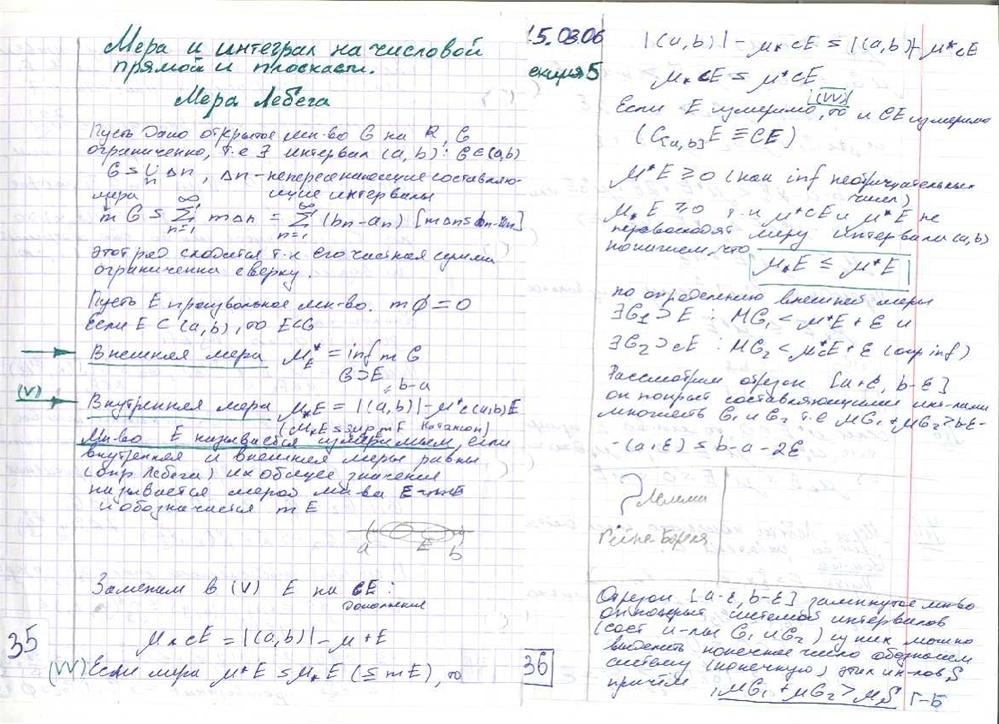 Мера и интеграл на числовой
прямой и плоскости.
Мера Лебега
Пусть дано открытое мн-во G на R, G
ограниченно, т.е ∃ интервал (a,b): G∈(a,b)
G = ∪ Δn, Δn - непересекающиеся составляю-
n
мера щие интервалы
m G = ∞∑n=1 m Δn = ∞∑n=1 (bn-an) [mΔn=bn-an]
этот ряд сходится т.к его частная сумма
ограниченна сверху.
Пусть E произвольное мн-во. m ∅ = 0
Если E ⊂ (a,b), то E⊂G
Внешняя мера μ*E = inf m G
G⊃E
b-a
(V)
Внутренняя мера μ*E = |(a,b)| - μ*c(a,b)E
Мн-во E называется измеримым, если
внутренняя и внешняя меры равны
(опр Лебега) их общее значение
называется мерой мн-ва E
и обозначается m E
a E b
Заменим в (V) E на cE:
дополнение
μ*cE = |(a,b)| - μ*E
35
(VV) Если мера μ*E = μ*E (= mE), то
15.03.06
лекция 5
|(a,b)| - μ*cE = |(a,b)| - μ*cE
μ*cE = μ*cE
(VV)
Если E измеримо, то и CE измеримо
(C[a,b]E ≡ CE)
μ*E ≥ 0 (как inf неотрицательных
чисел)
μ*E ≥ 0 т.к μ*cE и μ*E не
превосходят меру интервала (a,b)
покажем, что μ*E ≤ μ*E
по определению внешней меры
∃G1⊃E : μG1 < μ*E + ε и
∃G2⊃cE : μG2 < μ*cE + ε (опр inf)
Рассмотрим отрезок [a+ε, b-ε]
он покрыт составляющими инт-лами
множеств G1 и G2 т.е μG1+μG2 > b-ε-
-(a+ε) = b-a-2ε
Лемма
Гейне Бореля
Отрезок [a-ε, b-ε] замкнутое мн-во
он покрыт системой интервалов
(сост и-лы G1 и G2) из них можно
выделить конечное число обозначим
систему (конечную) этих ин-лов S
причём μG1 + μG2 > μS Г-Б
36